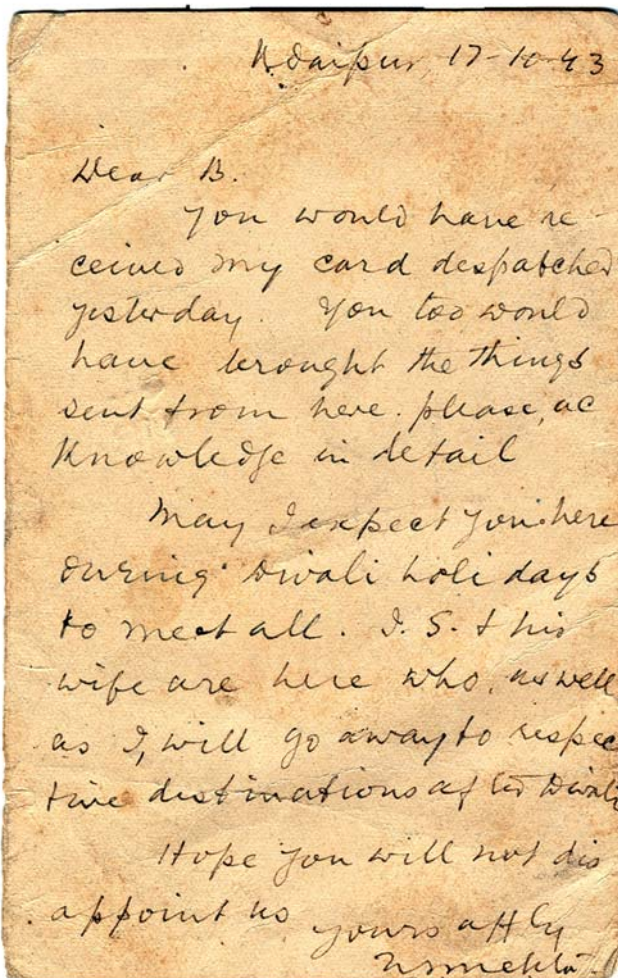 Udaipur, 17-10-43
Dear B.
You would have re
ceived my card despatched
yesterday. You too would
have brought the things
sent from here. please, ac
knowledge in detail
May I expect you here
during Diwali holidays
to meet all. I. S. & his
wife are here who, as well
as I, will go away to respec
tive destinations after Diwali
Hope you will not dis
appoint us
yours affly